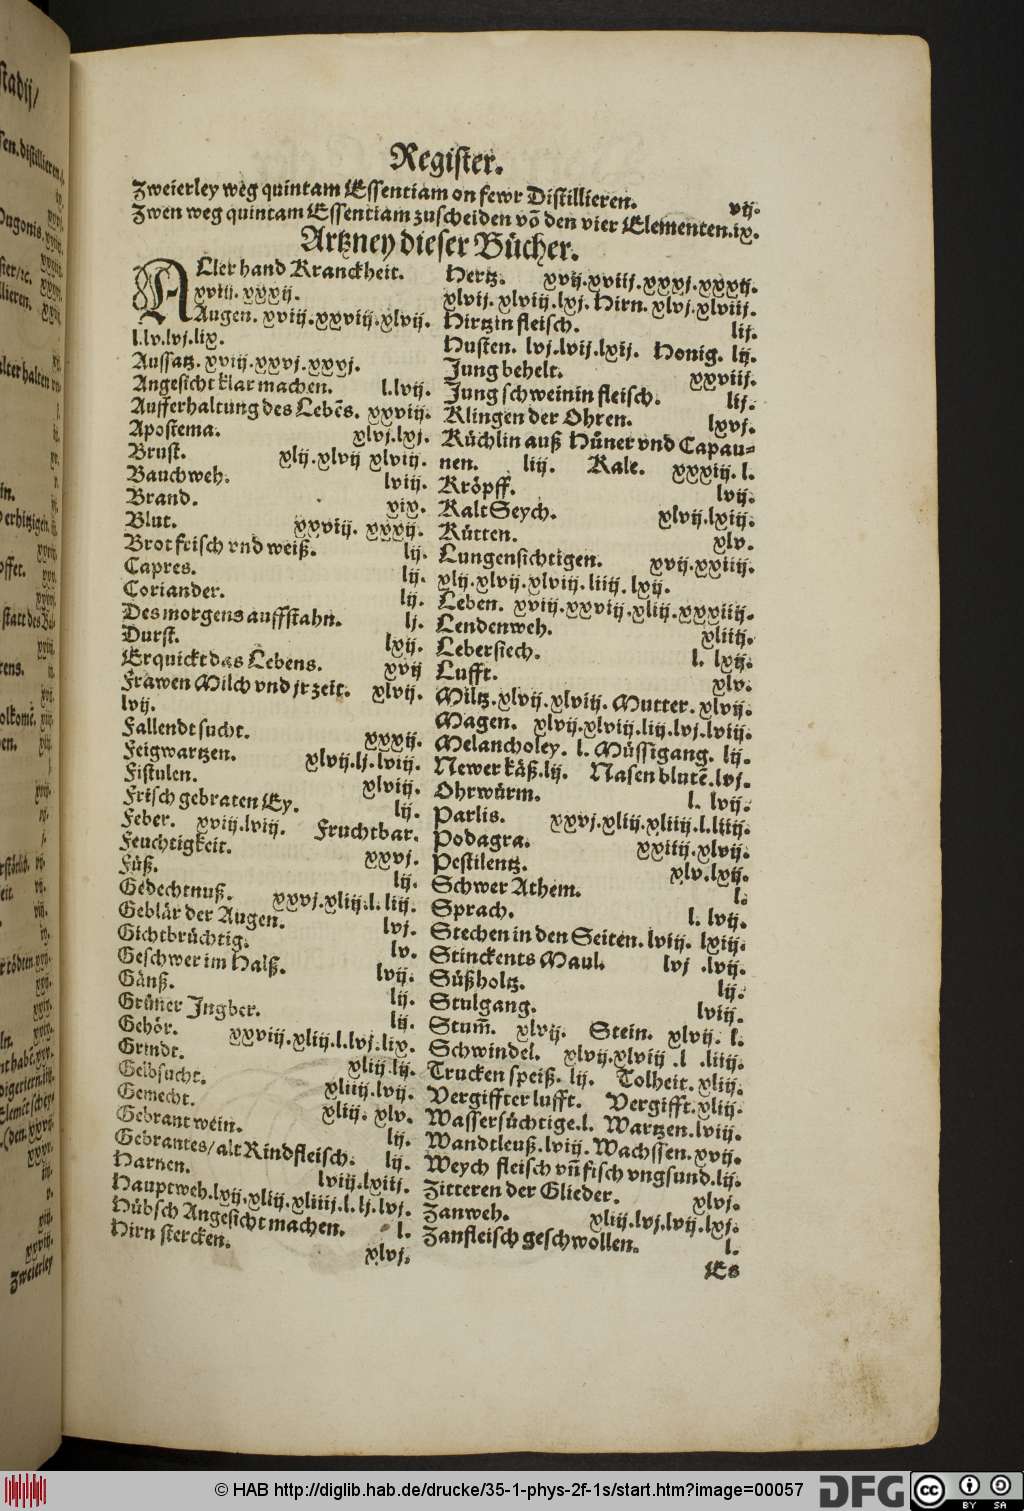 Register.
Zweierley weg quintam Essentiam on fewr Distillieren. vij.
Zwen weg quintam Essentiam zuscheiden võ den vier Elementen. ix.
Artzney dieser Bücher.
ALler hand Kranckheit.
xviij. xxxij.
Augen. xviij. xxviij. xlvij.
l. lv. lvj. lix.
Aussatz. xviij. xxvj. xxxj.
Angesicht klar machen. l. lvij.
Aufferhaltung des Lebẽs. xxviij.
Apostema. xlvj. lxj.
Brust. xlij. xlvij xlviij.
Bauchweh. lviij.
Brand. xix.
Blut. xxviij. xxxij.
Brot frisch vnd weiß. lij.
Capres. lij.
Coriander. lij.
Des morgens auffstahn. lj.
Durst. lxij.
Erquickt das Lebens. xvij
Frawen Milch vnd jr zeit. xlvij.
lvij.
Fallendt sucht. xxxij.
Feigwartzen. xlvij. lj. lviij.
Fistulen. xlviij.
Frisch gebraten Ey. lij.
Feber. xviij. lviij. Fruchtbar.
Feuchtigkeit. xxvj.
Füß. lij.
Gedechtnuß. xxvj. xliij. l. liij.
Geblär der Augen. lvj.
Gichtbrüchtig. lv.
Geschwer im Halß. lvij.
Gänß. lij.
Grüner Ingber. lij.
Gehör. xxviij. xliij. l. lvj. lix.
Grindt. xliij lij.
Gelbsucht. xliiij. lvij.
Gemecht. xliij. xlv.
Gebrant wein. lij.
Gebrantes/ alt Rindfleisch. lij.
Harnen. lviij. lxiij.
Hauptweh. lvij. xliij. xliiij. l. lj. lvj.
Hübsch Angesicht machen. l.
Hirn stercken. xlvj.
Hertz. xvij. xviij. xxxj. xxxij.
xlvij. xlviij. lxj. Hirn. xlvj. xlviij.
Hirtzin fleisch. lij.
Husten. lvj. lvij. lxij. Honig. lij.
Jung behelt. xxviij.
Jung schweinin fleisch. lij.
Klingen der Ohren. lxvj.
Küchlin auß Hüner vnd Capau-
nen. liij. Kale. xxxiij. l.
Kröpff. lvij.
Kalt Seych. xlvij. lxiij.
Kütten. xlv.
Lungensichtigen. xvij. xxiiij.
xlij. xlvij. xlviij. liiij. lxij.
Leben. xviij. xxvij. xliij. xxxiiij.
Lendenweh. xliiij.
Lebersiech. l. lxij.
Lufft. xlv.
Miltz. xlvij. xlviij. Mutter. xlvij.
Magen. xlvij. xlviij. liij. lvj. lviij.
Melancholey. l. Müssigang. lij.
Newer käß. lij. Nasen blutẽ. lvj.
Ohrwürm. l. lvij.
Parlis. xxvj. xliij. xliiij. l. liiij.
Podagra. xxiiij. xlvij.
Pestilentz. xlv. lxij.
Schwer Athem. l.
Sprach. l. lvij.
Stechen in den Seiten. lviij. lxiij.
Stinckents Maul. lvj .lvij.
Süßholtz. lij.
Stulgang. lviij.
Stum̃. xlvij. Stein. xlvij. l.
Schwindel. xlvij. xlviij .l .liiij.
Trucken speiß. lij. Tolheit. xliij.
Vergiffter lufft. Vergifft. xliij.
Wassersüchtige. l. Wartzen. lviij.
Wandtleuß. lviij. Wachssen. xvij.
Weych fleisch vñ fisch vngsund. lij.
Zitteren der Glieder. xlvj.
Zanweh. xliij. lvj. lvij. lxj.
Zanfleisch geschwollen. l.
Es
© HAB http://diglib.hab.de/drucke/35-1-phys-2f-1s/start.htm?image=00057
DFG
cc
BY SA